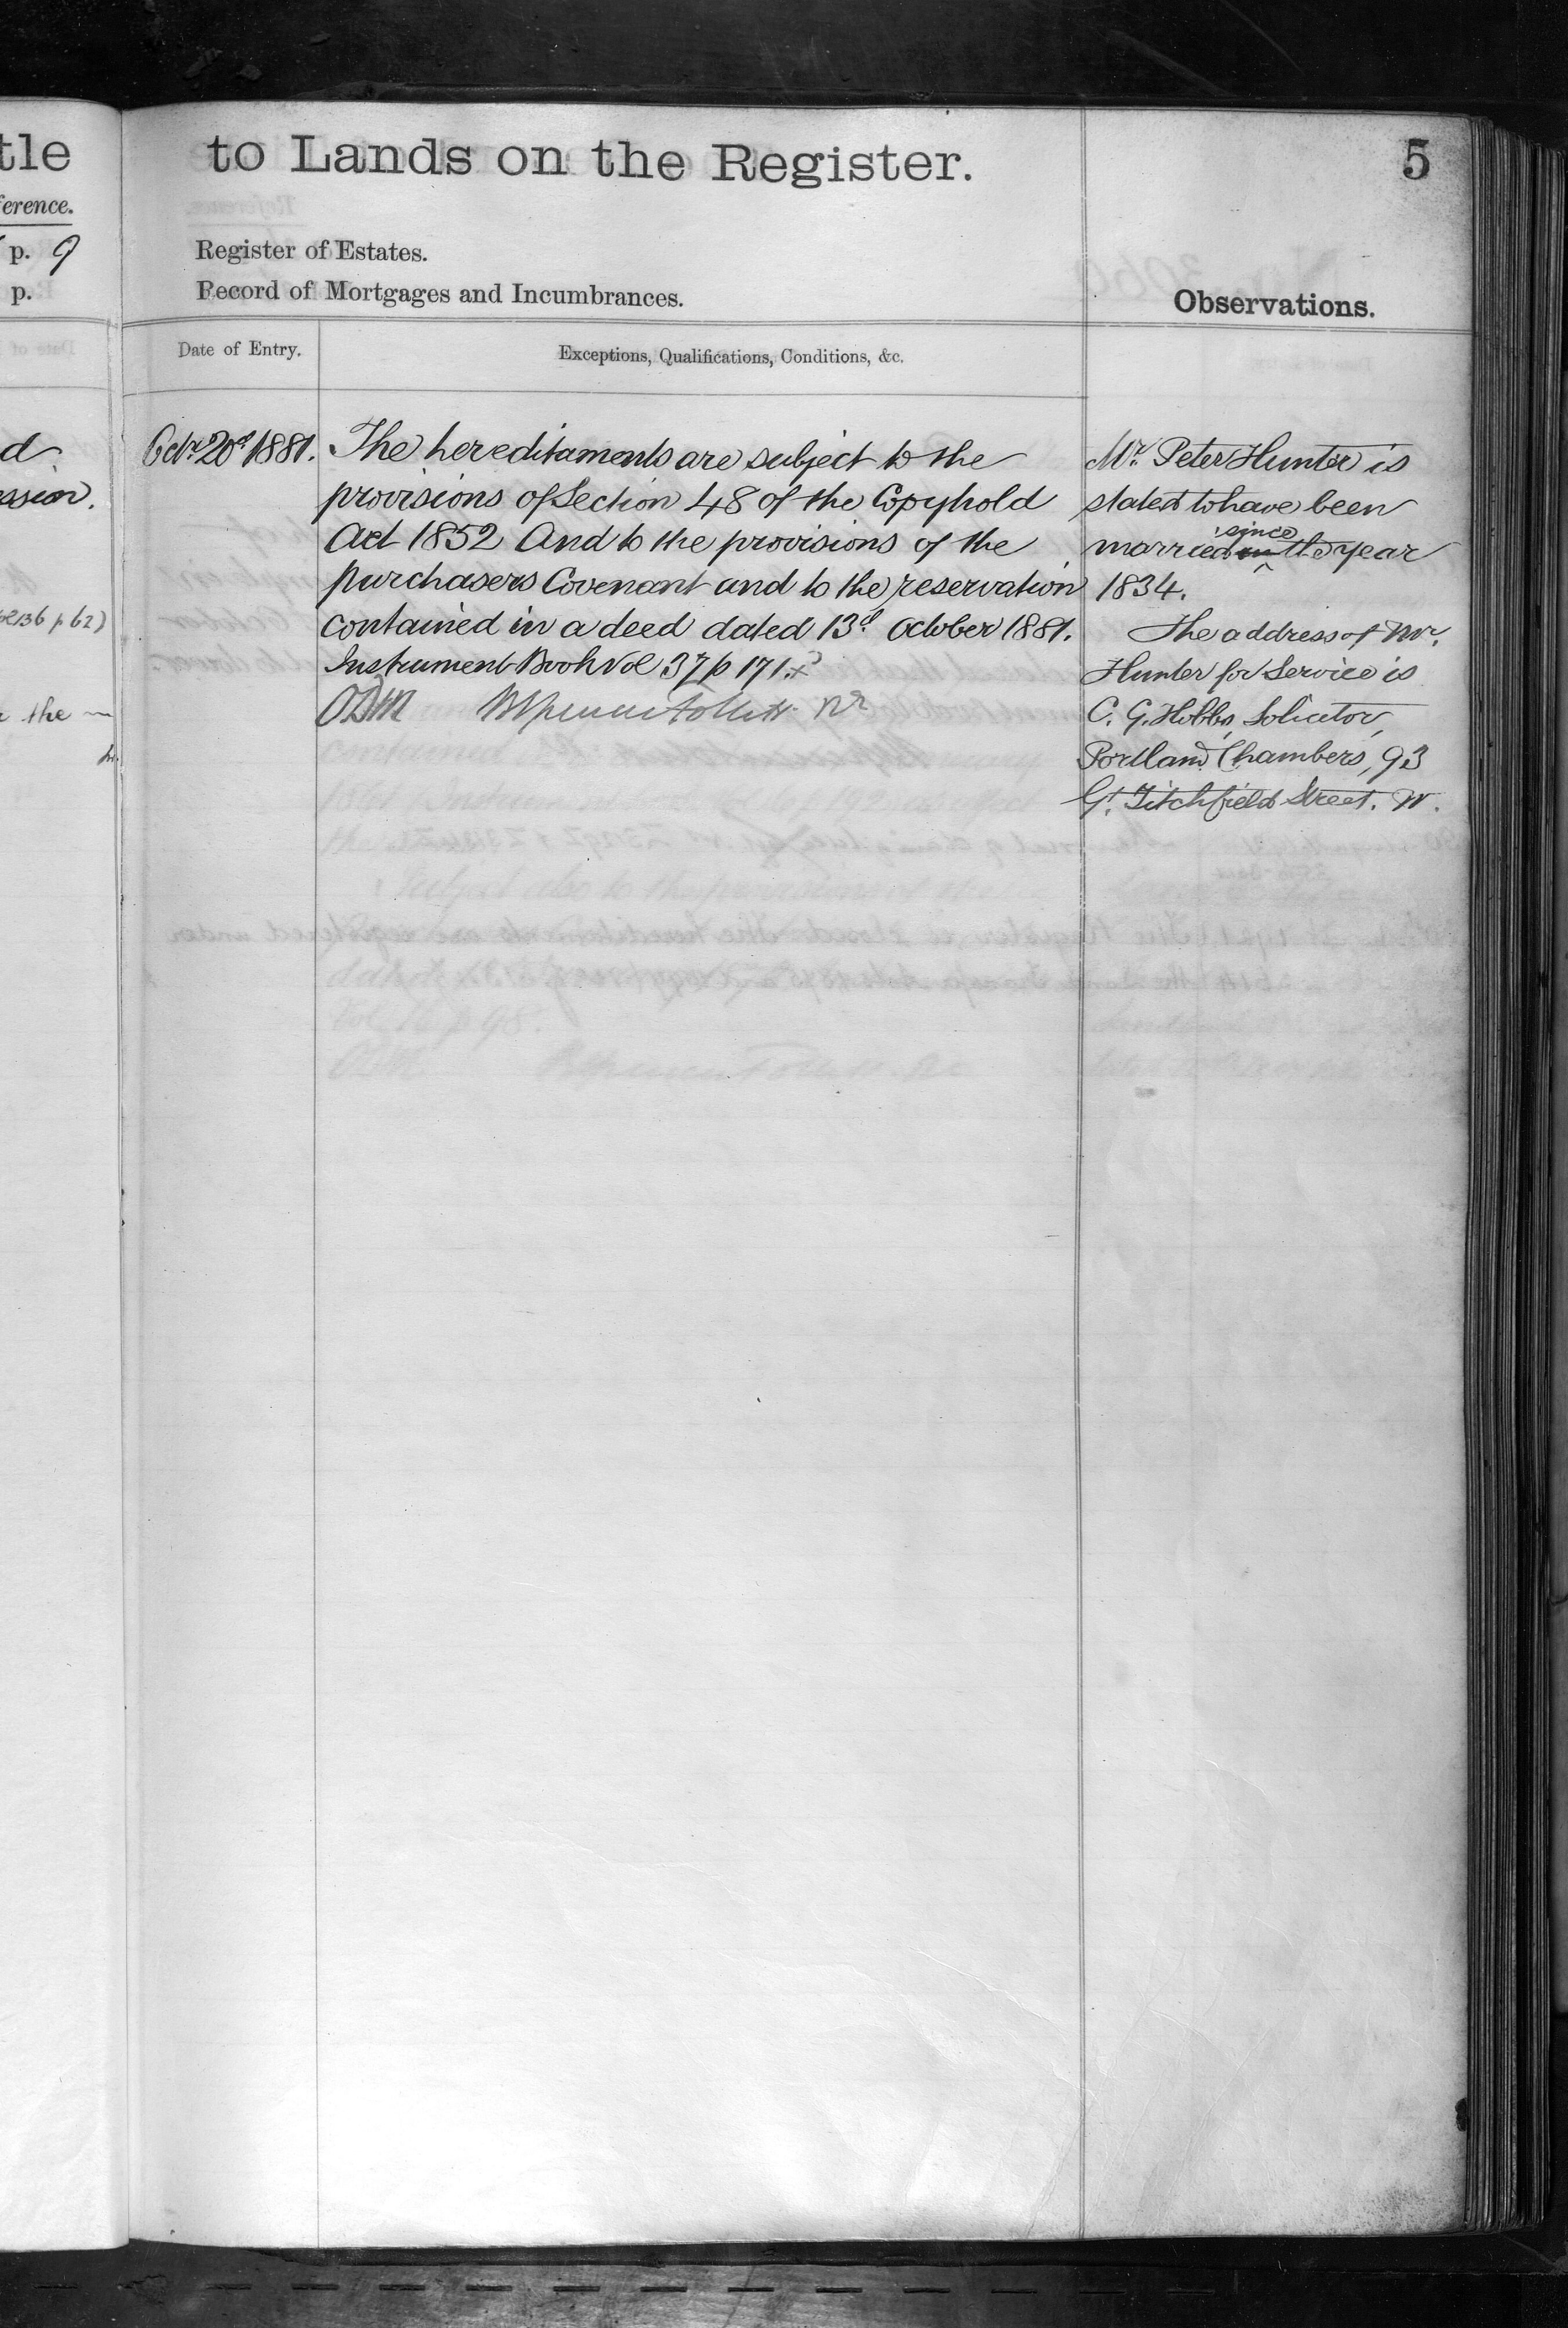 tle
ference.
p. 9
p.
d
ession.
136 p 62)
the
to Lands on the Register.
5
Register of Estates.
Record of Mortgages and Incumbrances.
Observations.
Date of Entry.
Exceptions, Qualifications, Conditions, &c.
Octr. 20d 1881.
The hereditaments are subject to the
provisions of Section 48 of the Copyhold
Act 1852 And to the provisions of the
purchasers Covenant and to the reservation
contained in a deed dated 13d. October 1881.
Instrument Book Vol 37 p 171.
Mr. Peter Hunter is
stated to have been
married in since the year
1834.
The address of Mr.
Hunter for Service is
C. G. Hobbs, Solicitor,
Portland Chambers, 93
Gt. Titchfield Street. W.